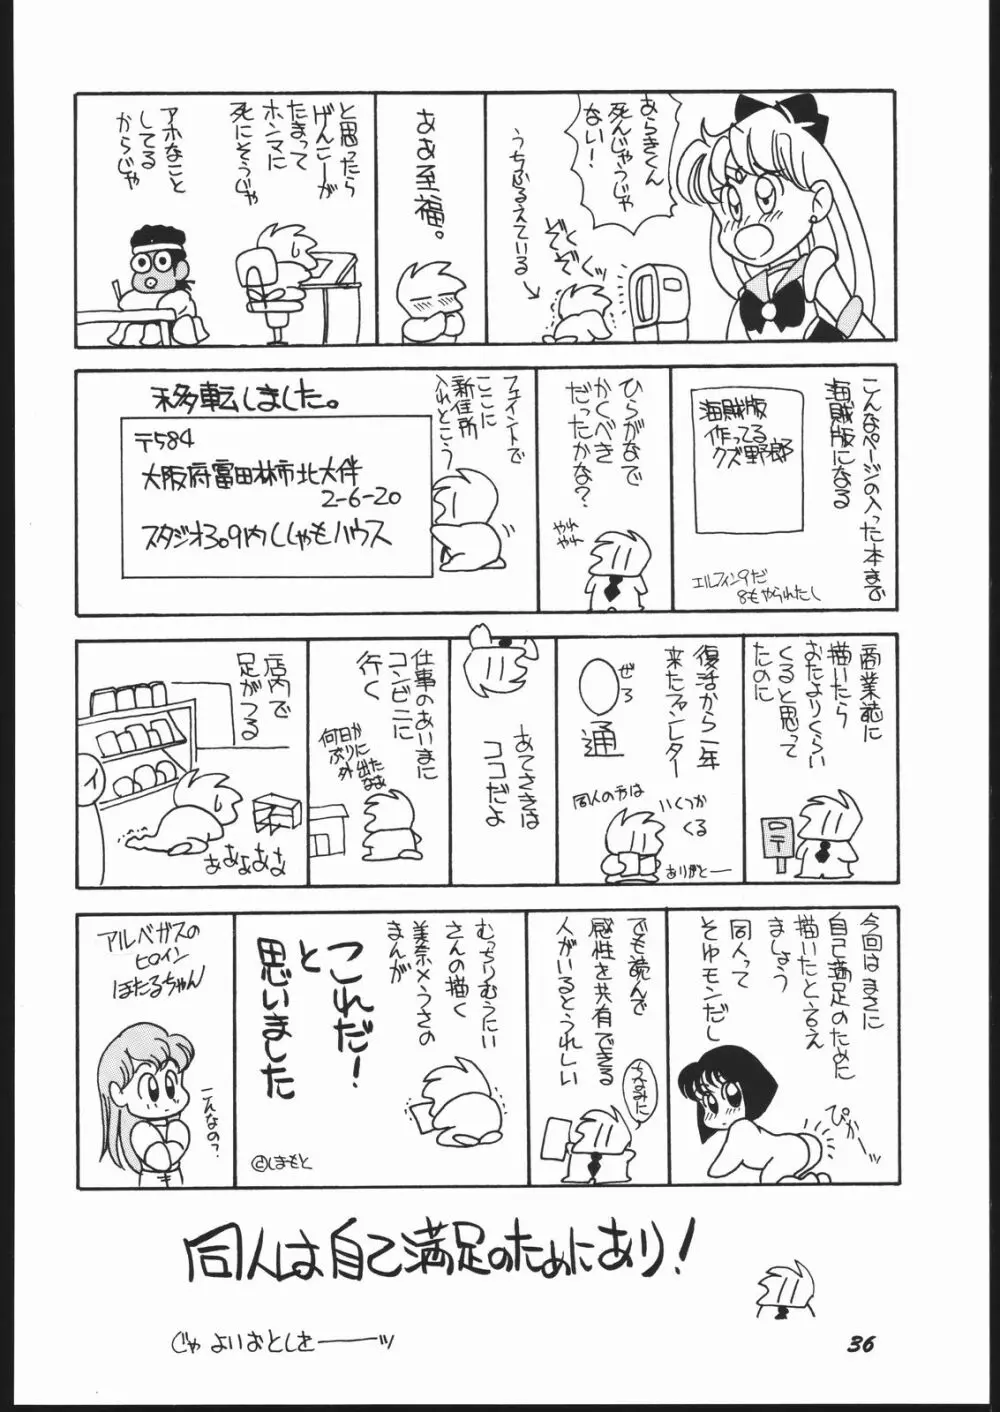 あらきくん
死んじゃうじゃ
ない!
ぞくぞくっ
うちふるえている
ああ至福。
と思ったら
げんこーが
たまって
ホンマに
死にそうじゃ
アホなこと
してる
からじゃ
こんなページの入った本まで
海賊版になる
海賊版
作ってる
クズ野郎
エルフィン9だ
8もやられたし
ひらがなで
かくべき
だったかな?
やれ
やれ
フェイントで
ここに
新住所
入れとこう
移転しました。
〒584
大阪府富田林市北大伴
2-6-20
スタジオ3.9内ししゃもハウス
商業誌に
描いたら
おたよりくらい
くると思って
たのに
復活から一年
来たファンレター
ぜろ
0通
同人の方は
いくつか
くる
ありがとー
あてさきは
ココだよ
仕事のあいまに
コンビニに
行く
何日かに
ぶり出たなぁ
外
店内で
足がつる
あああああ
今回はまさに
自己満足のために
描いたと言え
ましょう
同人って
そゆモンだし
ぴかーッ
でも読んで
感性を共有できる
人がいるとうれしい
ちなみに
むっちりむうにい
さんの描く
美奈×うさの
まんが
これだ!
と
思いました
©しまもと
アルベガスの
ヒロイン
ほたるちゃん
こんなの?
同人は自己満足のためにあり!
じゃ よいおとしをーーッ
36